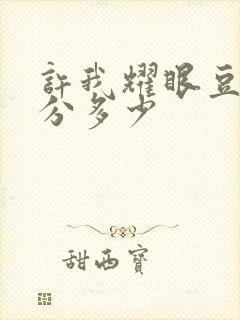 許我耀眼豆
分多少
甜西寶